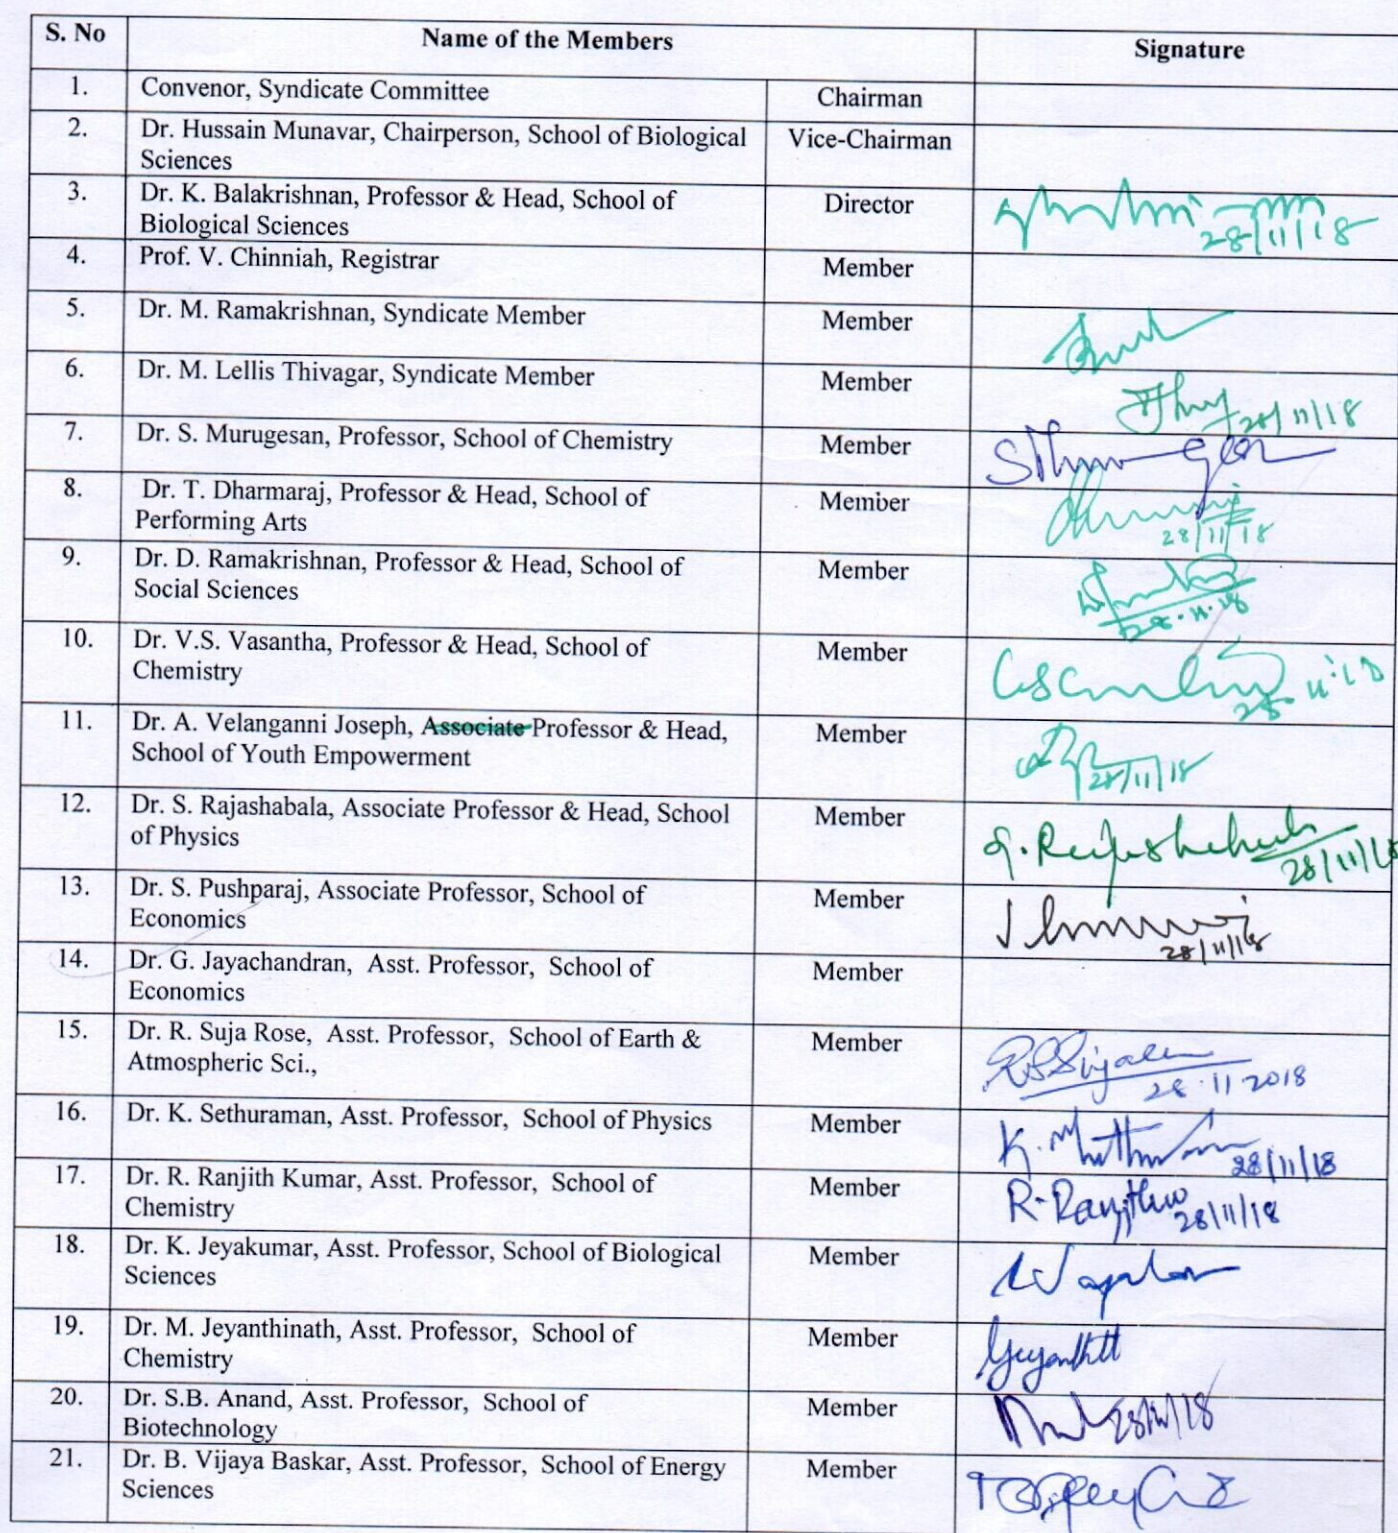 S. No Name of the Members Signature
1. Convenor, Syndicate Committee Chairman
2. Dr. Hussain Munavar, Chairperson, School of Biological Vice-Chairman
Sciences
3. Dr. K. Balakrishnan, Professor & Head, School of Director
Biological Sciences 28/11/18
4. Prof. V. Chinniah, Registrar Member
5. Dr. M. Ramakrishnan, Syndicate Member Member
6. Dr. M. Lellis Thivagar, Syndicate Member Member
28/11/18
7. Dr. S. Murugesan, Professor, School of Chemistry Member
8. Dr. T. Dharmaraj, Professor & Head, School of Member
Performing Arts 28/11/18
9. Dr. D. Ramakrishnan, Professor & Head, School of Member
Social Sciences 28.11.18
10. Dr. V.S. Vasantha, Professor & Head, School of Member
Chemistry
11. Dr. A. Velanganni Joseph, Associate Professor & Head, Member
School of Youth Empowerment 28/11/18
12. Dr. S. Rajashabala, Associate Professor & Head, School Member
of Physics 28/11/18
13. Dr. S. Pushparaj, Associate Professor, School of Member
Economics 28/11/18
14. Dr. G. Jayachandran, Asst. Professor, School of Member
Economics
15. Dr. R. Suja Rose, Asst. Professor, School of Earth & Member
Atmospheric Sci., 28.11 2018
16. Dr. K. Sethuraman, Asst. Professor, School of Physics Member
28/11/18
17. Dr. R. Ranjith Kumar, Asst. Professor, School of Member
Chemistry 28/11/18
18. Dr. K. Jeyakumar, Asst. Professor, School of Biological Member
Sciences
19. Dr. M. Jeyanthinath, Asst. Professor, School of Member
Chemistry
20. Dr. S.B. Anand, Asst. Professor, School of Member
Biotechnology 28/11/18
21. Dr. B. Vijaya Baskar, Asst. Professor, School of Energy Member
Sciences